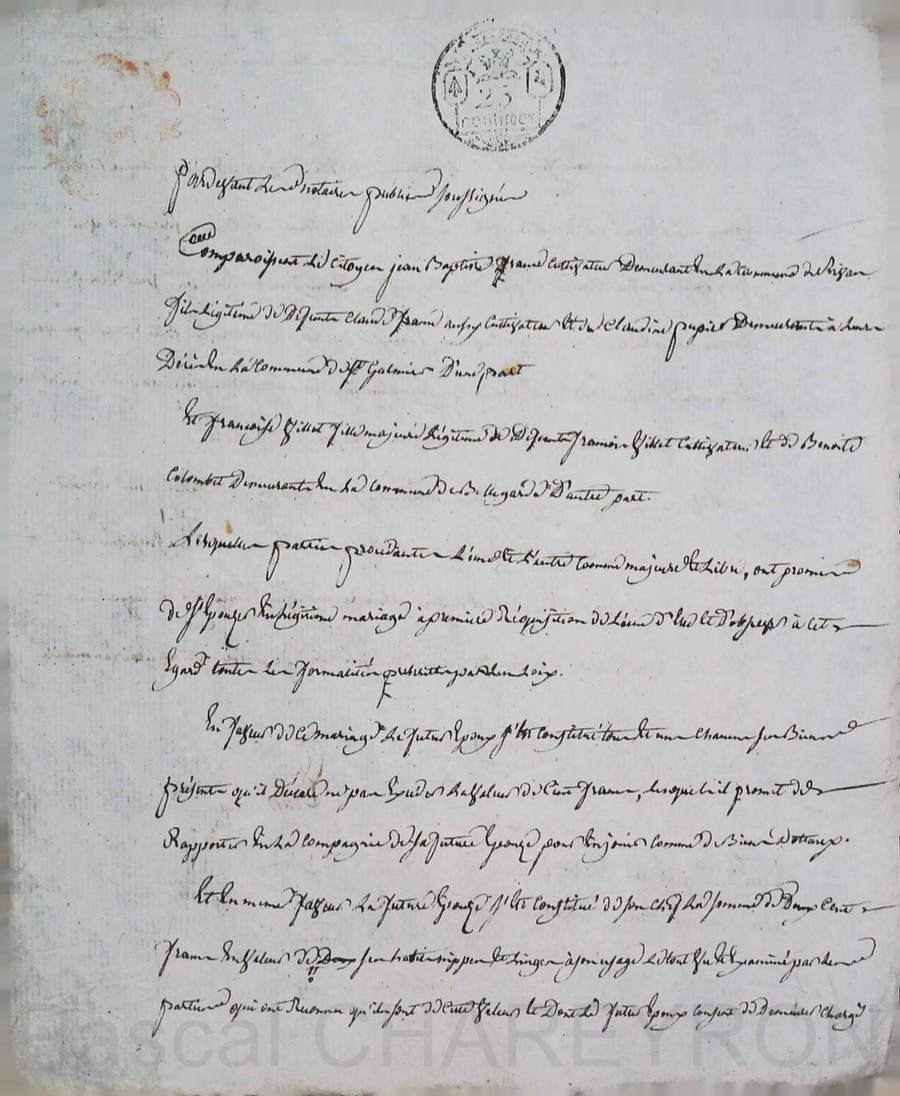 25
centimes
Pardevant Le notaire public soussigné
Comparoissent Le Citoyen jean Baptiste frane Cultivateur Demeurant En La Commune de
fils Légitime de Defunt Claude frane aussy Cultivateur Et de Claudine pupier Demeurant à
En La Commune de st Galmier D'une part
Et francoise Villet fille majeure Légitime de Defunt francois Villet Cultivateur, Et de Benoite
Colombet Demeurante En La Commune de Bellegarde D'autre part.
Lesquelles parties procédantes L'une Et L'autre Comme majeure Et Libre, ont promis
de s'Epouzer En Légitime mariage a premiere Réquisition de L'une D'Elles Et D'observer à Cet
Egard toutes Les formalités prescrittes par Les Loix.
En faveur de Ce mariage Le futur Epoux s'Est Constitué tous Et uns Chacuns ses Biens
présents qu'il Déclare ne pas Exceder La Valeur de Cent francs, Lesquels il promet de
Rapporter En La Compagnie de sa future Epouze pour En jouir Comme de Biens Dottaux.
Et En meme faveur La future Epouze s'Est Constitué de son Chef La somme de Deux Cent
francs En Valeur de ses nippes Et Linges à son usage Le tout Vu Et Examiné par Les
parties qui ont Reconnu qu'ils sont de Cette Valeur Et Dont Le futur Epoux Consent de Demeurer Chargé
Pascal CHAREYRON